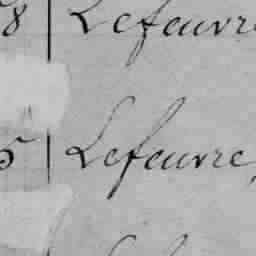 8 Lefeuvre
5 Lefeuvre,